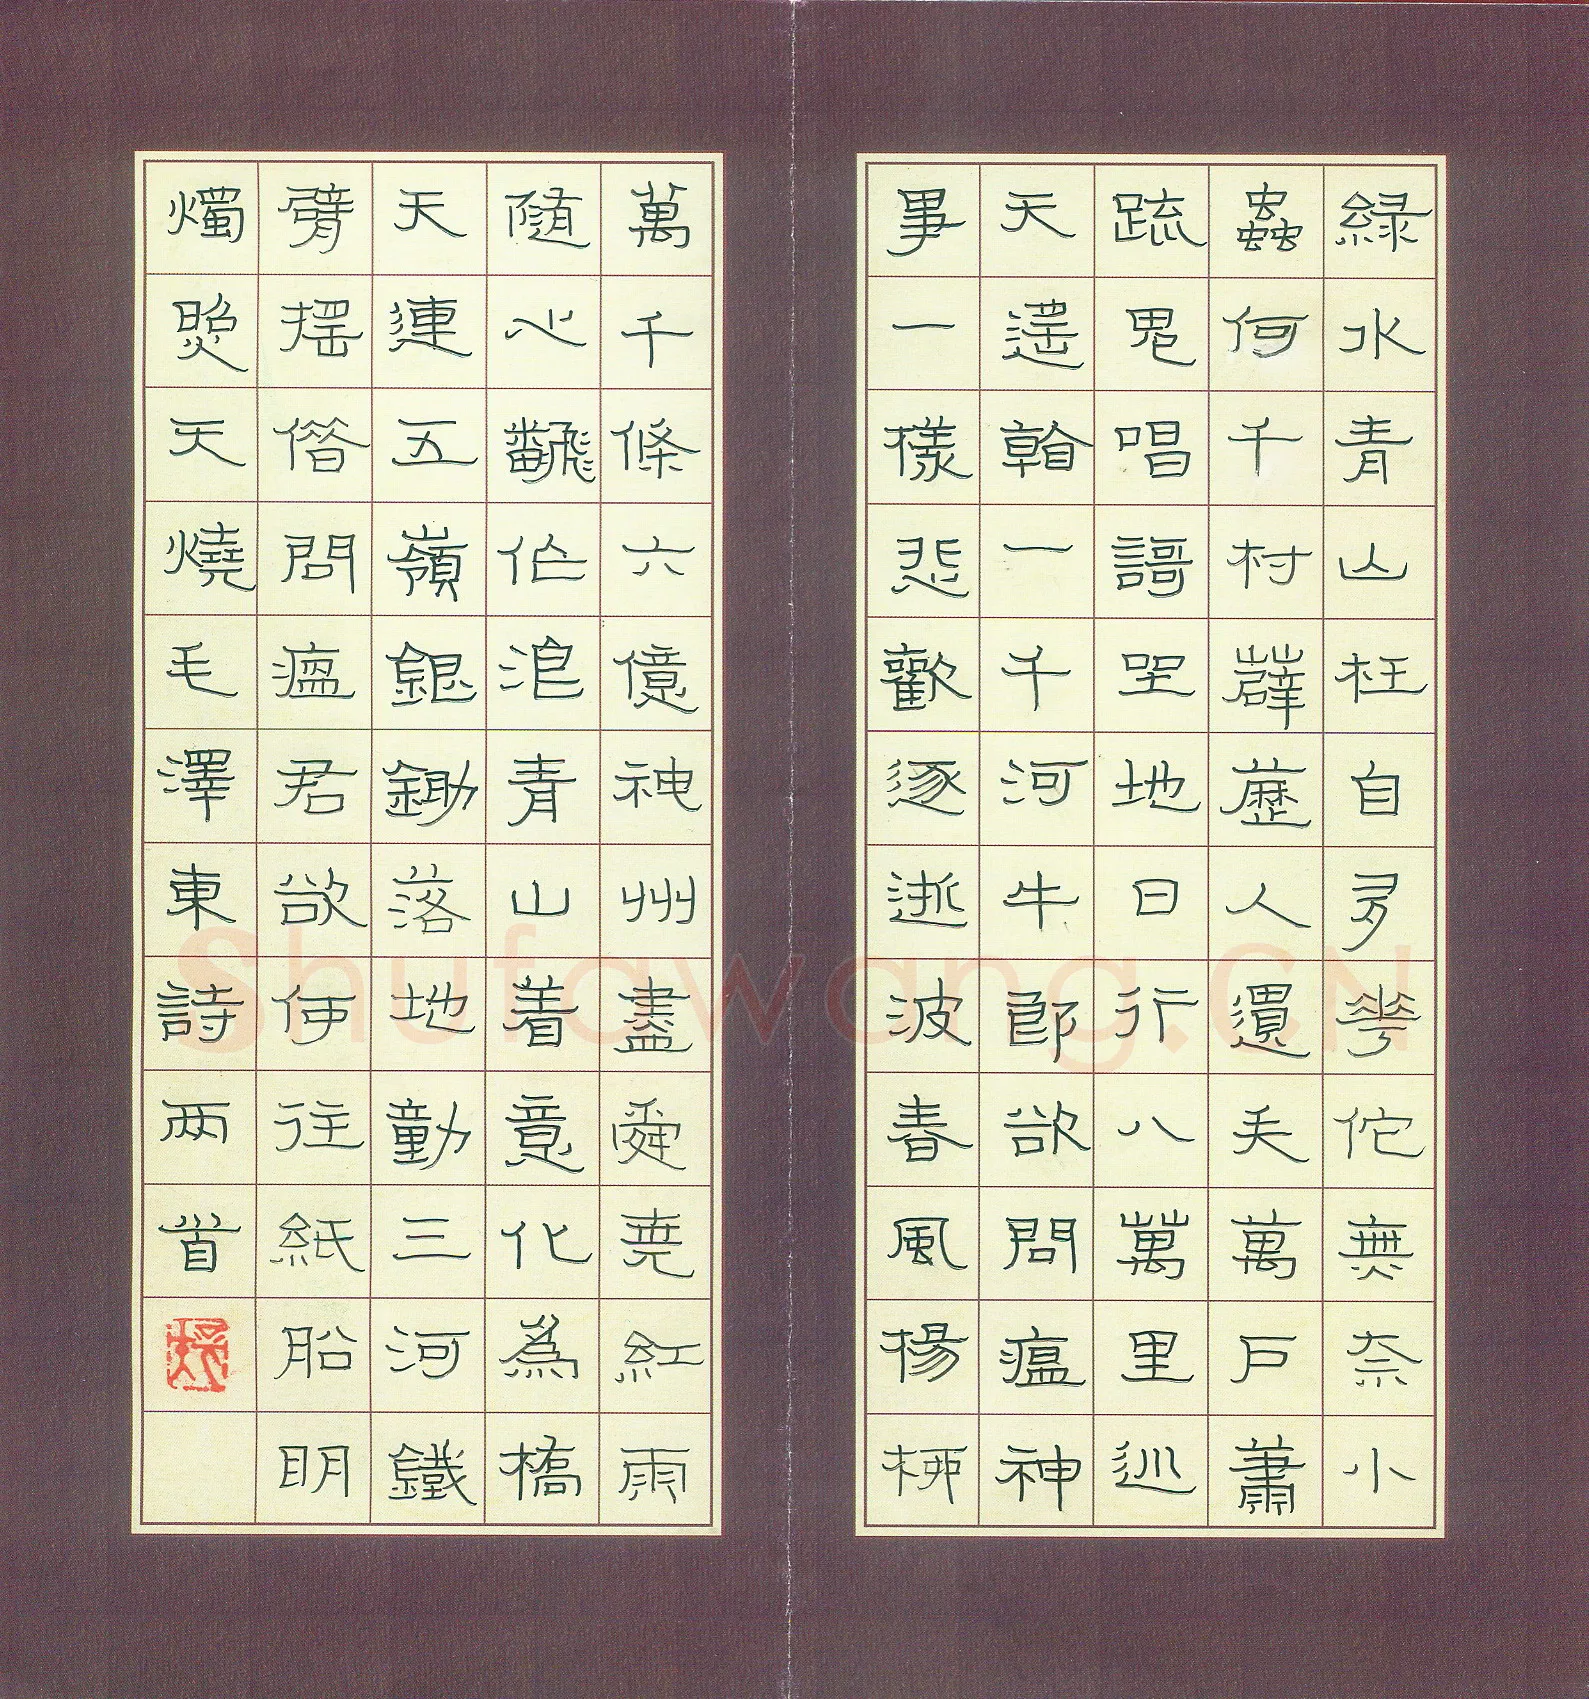 緑水青山枉自多華佗無奈小
蟲何千村薜藶人遺矢萬户蕭
疏鬼唱謌坐地日行八萬里巡
天遥看一千河牛郎欲問瘟神
事一樣悲歡逐逝波春風楊柳
萬千條六億神州盡舜堯紅雨
隨心翻作浪青山着意化為橋
天連五嶺銀鋤落地動三河鐵
臂摇借問瘟君欲何往紙船明
燭照天燒毛澤東詩兩首
Shufawang.CN